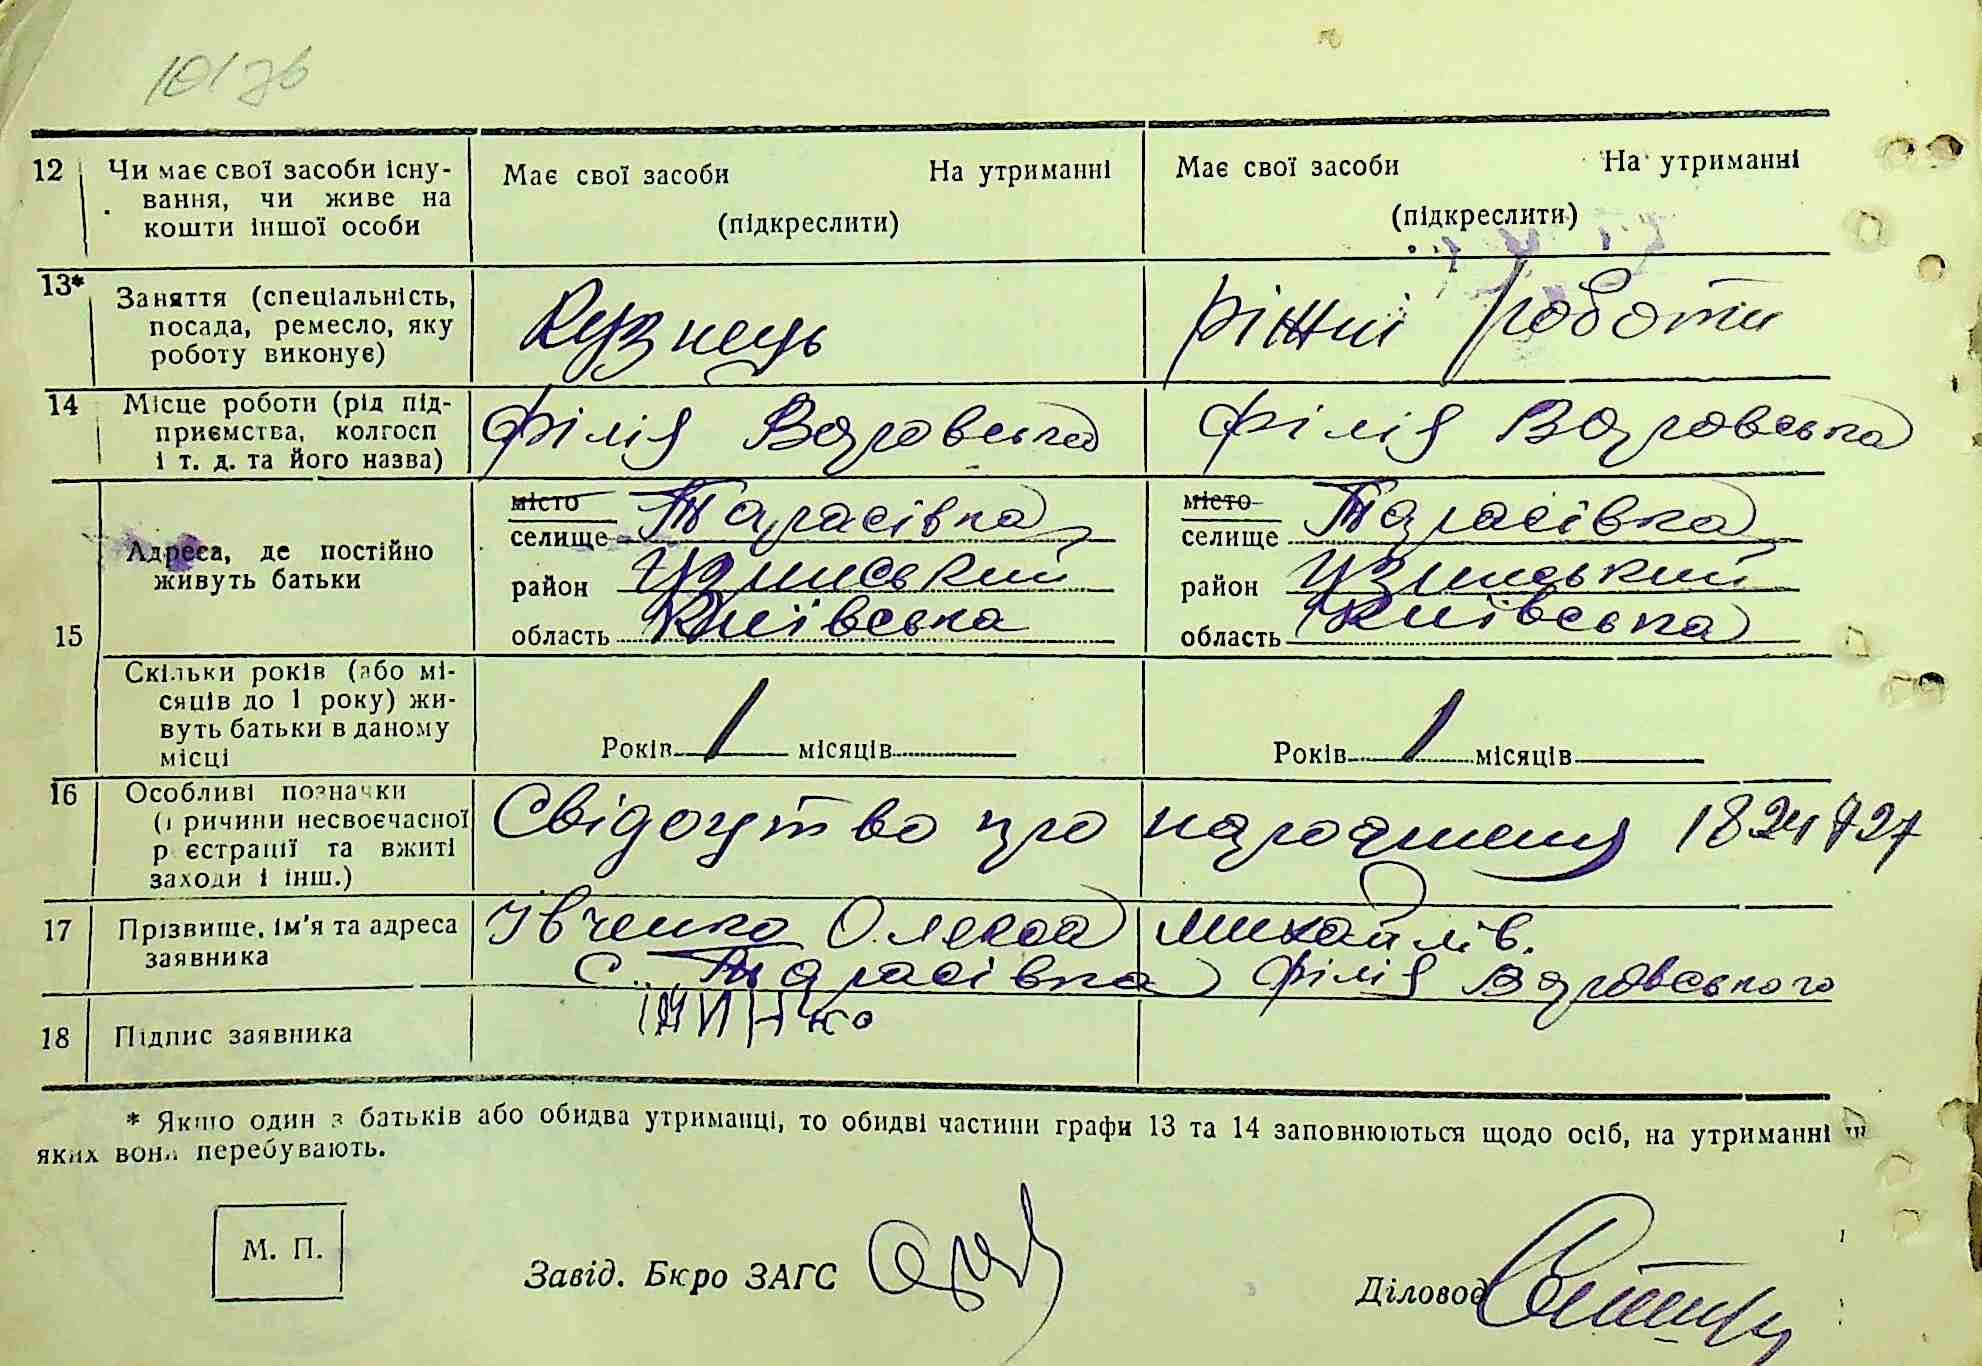 12 Чи має свої засоби існу-
вання, чи живе на
кошти іншої особи
Має свої засоби На утриманні
(підкреслити)
Має свої засоби На утриманні
(підкреслити)
13* Заняття (спеціальність,
посада, ремесло, яку
роботу виконує)
Кузнець
ріжні роботи
14 Місце роботи (рід під-
приємства, колгосп
і т. д. та його назва)
філія
філія
15 Адреса, де постійно
живуть батьки
місто Тарасівка
селище
район Узинський
область Київська
місто Тарасівка
селище
район Узинський
область Київська
Скільки років (або мі-
сяців до 1 року) жи-
вуть батьки в даному
місці
Років 1 місяців
Років 1 місяців
16 Особливі позначки
(причини несвоєчасної
реєстрації та вжиті
заходи і інш.)
Свідоцтво про народження
17 Прізвище, ім'я та адреса
заявника
Івченко Олекса Михайлів.
с. Тарасівка філія
18 Підпис заявника
* Якщо один з батьків або обидва утриманці, то обидві частини графи 13 та 14 заповнюються щодо осіб, на утриманні
яких вони перебувають.
М. П.
Завід. Бюро ЗАГС
Діловод